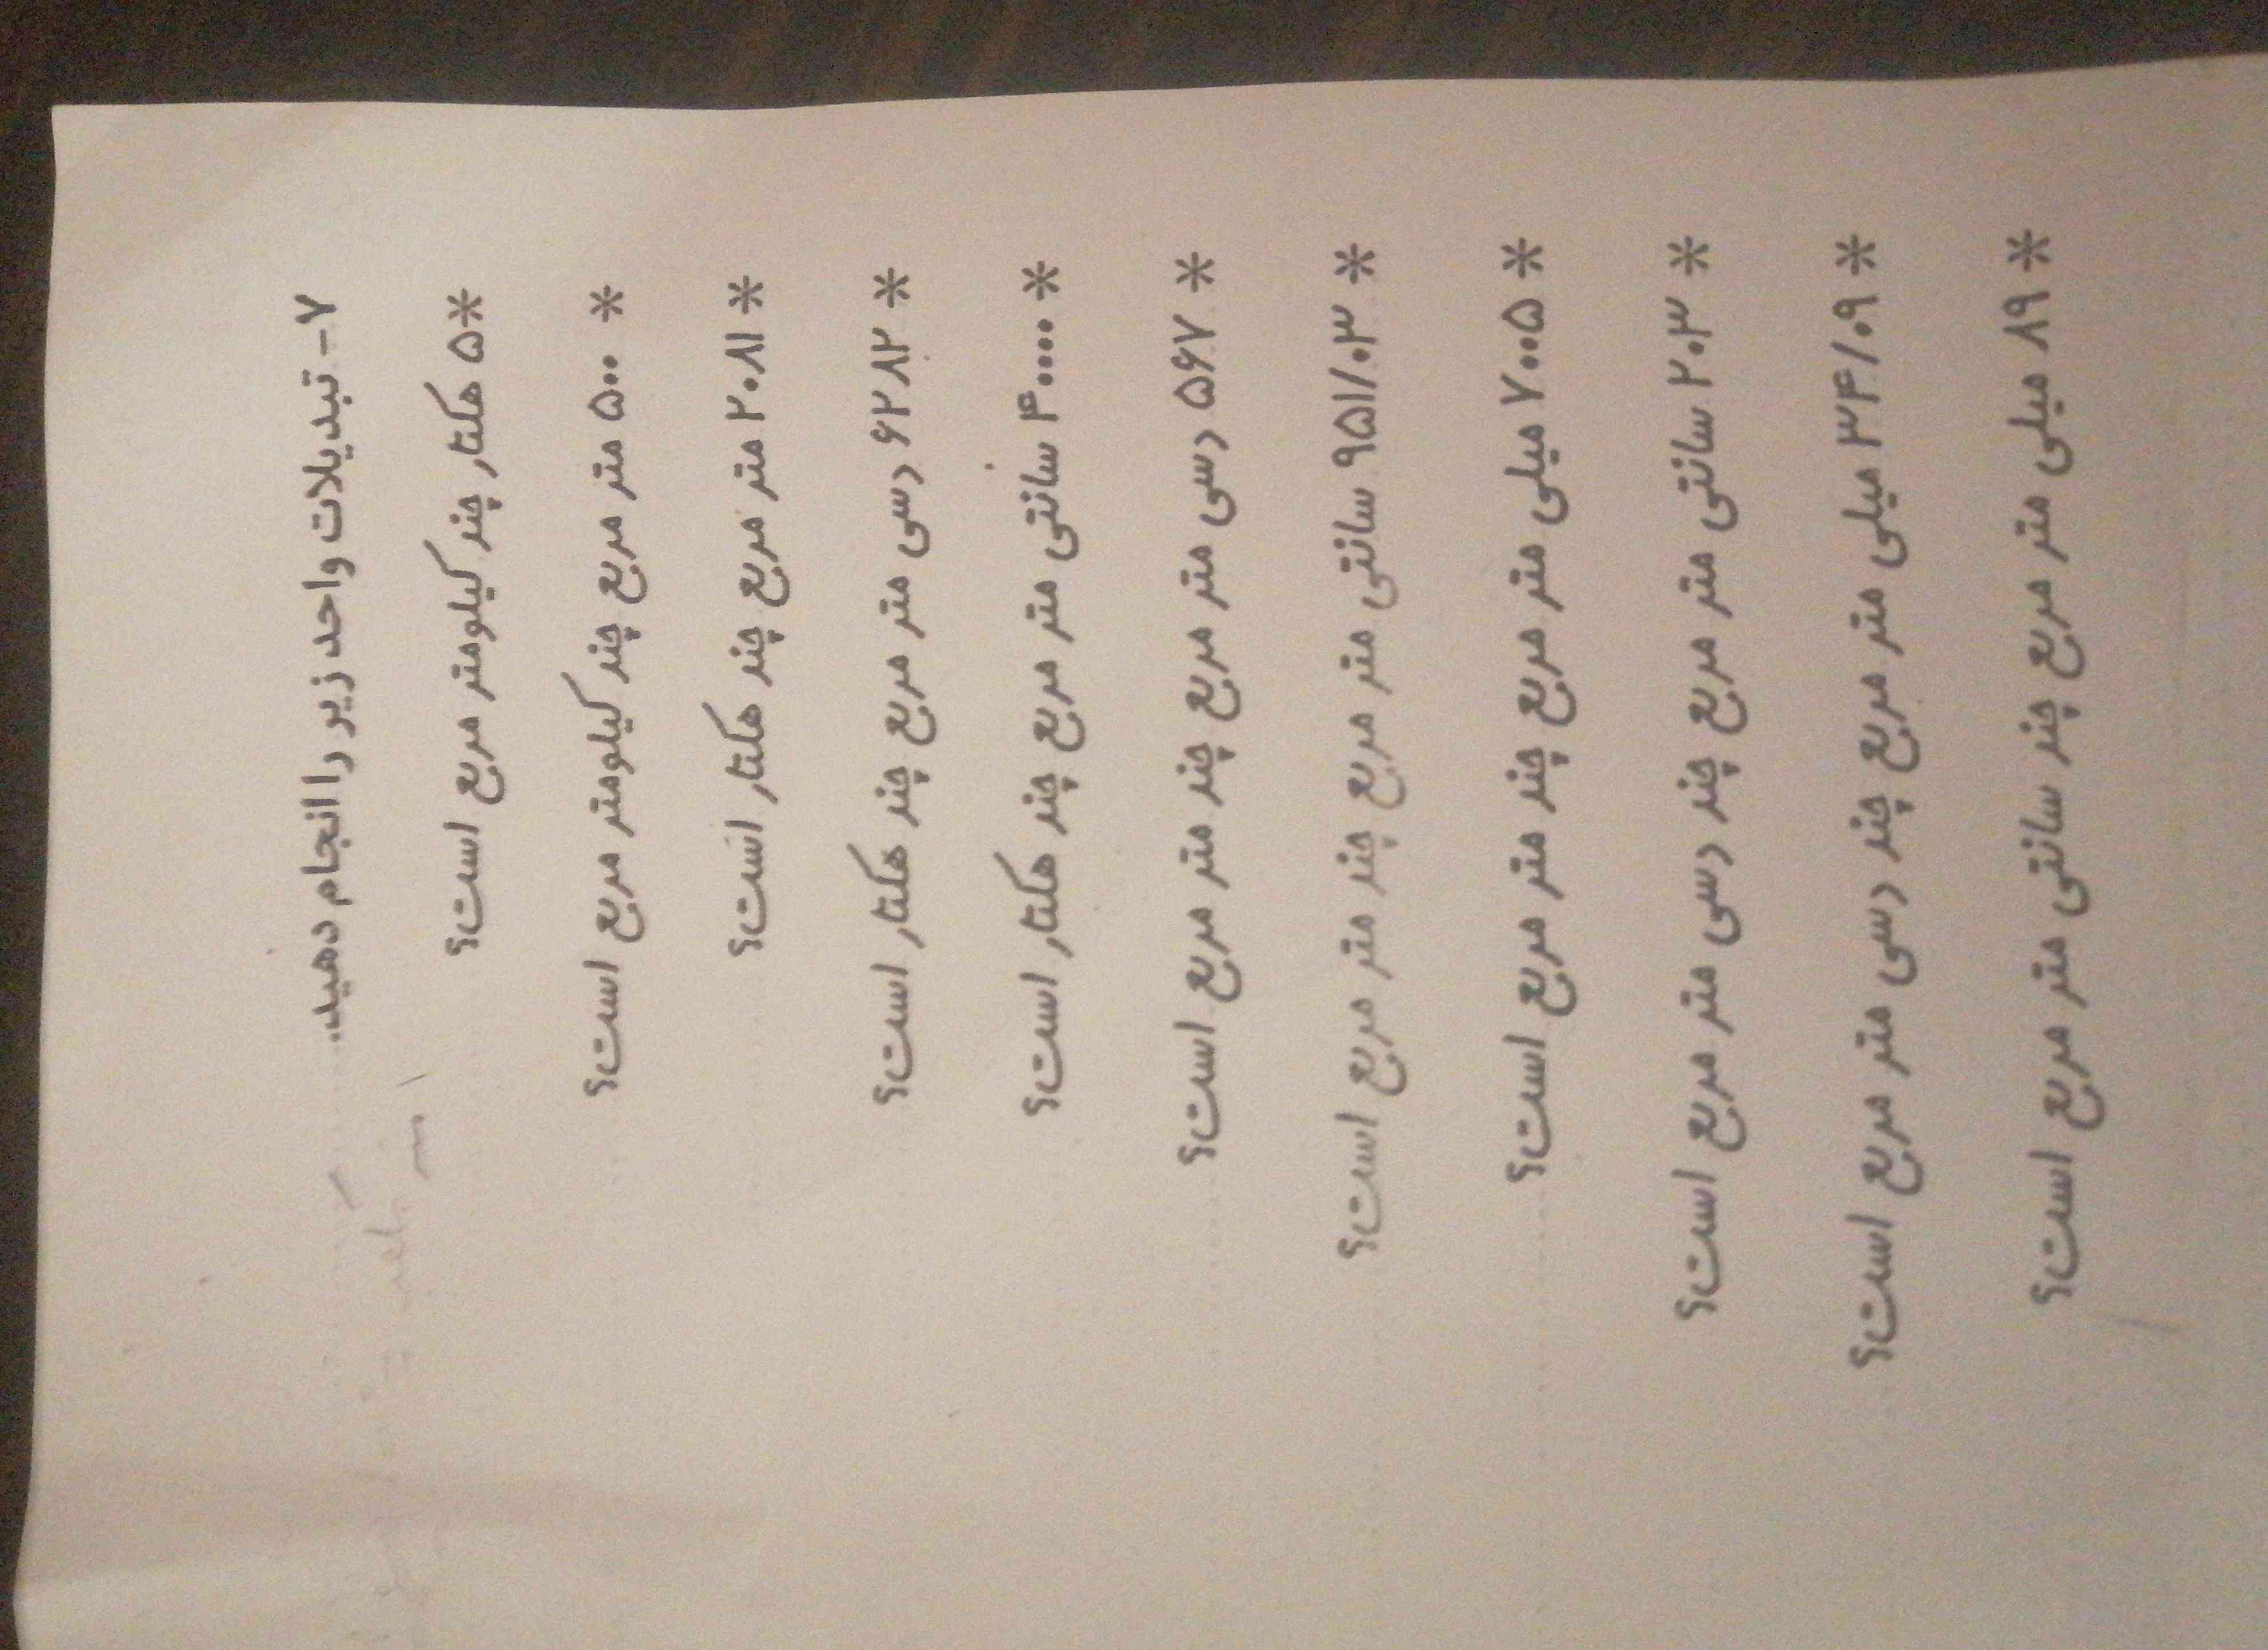 ۷- تبدیلات واحد زیر را انجام دهید.
* ۵ هکتار چند کیلومتر مربع است؟
* ۵۰۰ متر مربع چند کیلومتر مربع است؟
* ۲۰۸۱ متر مربع چند هکتار است؟
* ۶۲۸۲ دسی متر مربع چند هکتار است؟
* ۴۰۰۰۰ سانتی متر مربع چند هکتار است؟
* ۵۶۷ دسی متر مربع چند متر مربع است؟
* ۹۵۱/۰۳ سانتی متر مربع چند متر مربع است؟
* ۷۰۰۵ میلی متر مربع چند متر مربع است؟
* ۲۰۳ سانتی متر مربع چند دسی متر مربع است؟
* ۳۴/۰۹ میلی متر مربع چند دسی متر مربع است؟
* ۸۹ میلی متر مربع چند سانتی متر مربع است؟